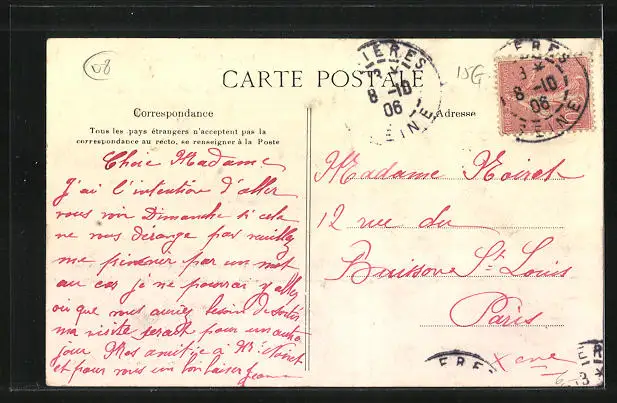 08
CARTE POSTALE
15G
IERES
8 -10
06
INE
ERES
8 -10
06
EINE
Correspondance
Adresse
Tous les pays étrangers n'acceptent pas la
correspondance au recto, se renseigner à la Poste
Chère Madame
J'ai l'intention d'aller
vous voir Dimanche si cela
ne vous dérange pas veuillez
me prévenir par un mot
au cas je ne pourrai y aller
où que vous auriez besoin de sortir
ma visite serait pour un autre
jour Mes amitiés à Mr Noiret
et pour vous un bon baiser Jeanne
Madame Noiret
12 rue du
Buisson St Louis
Paris
Xeme
ERES